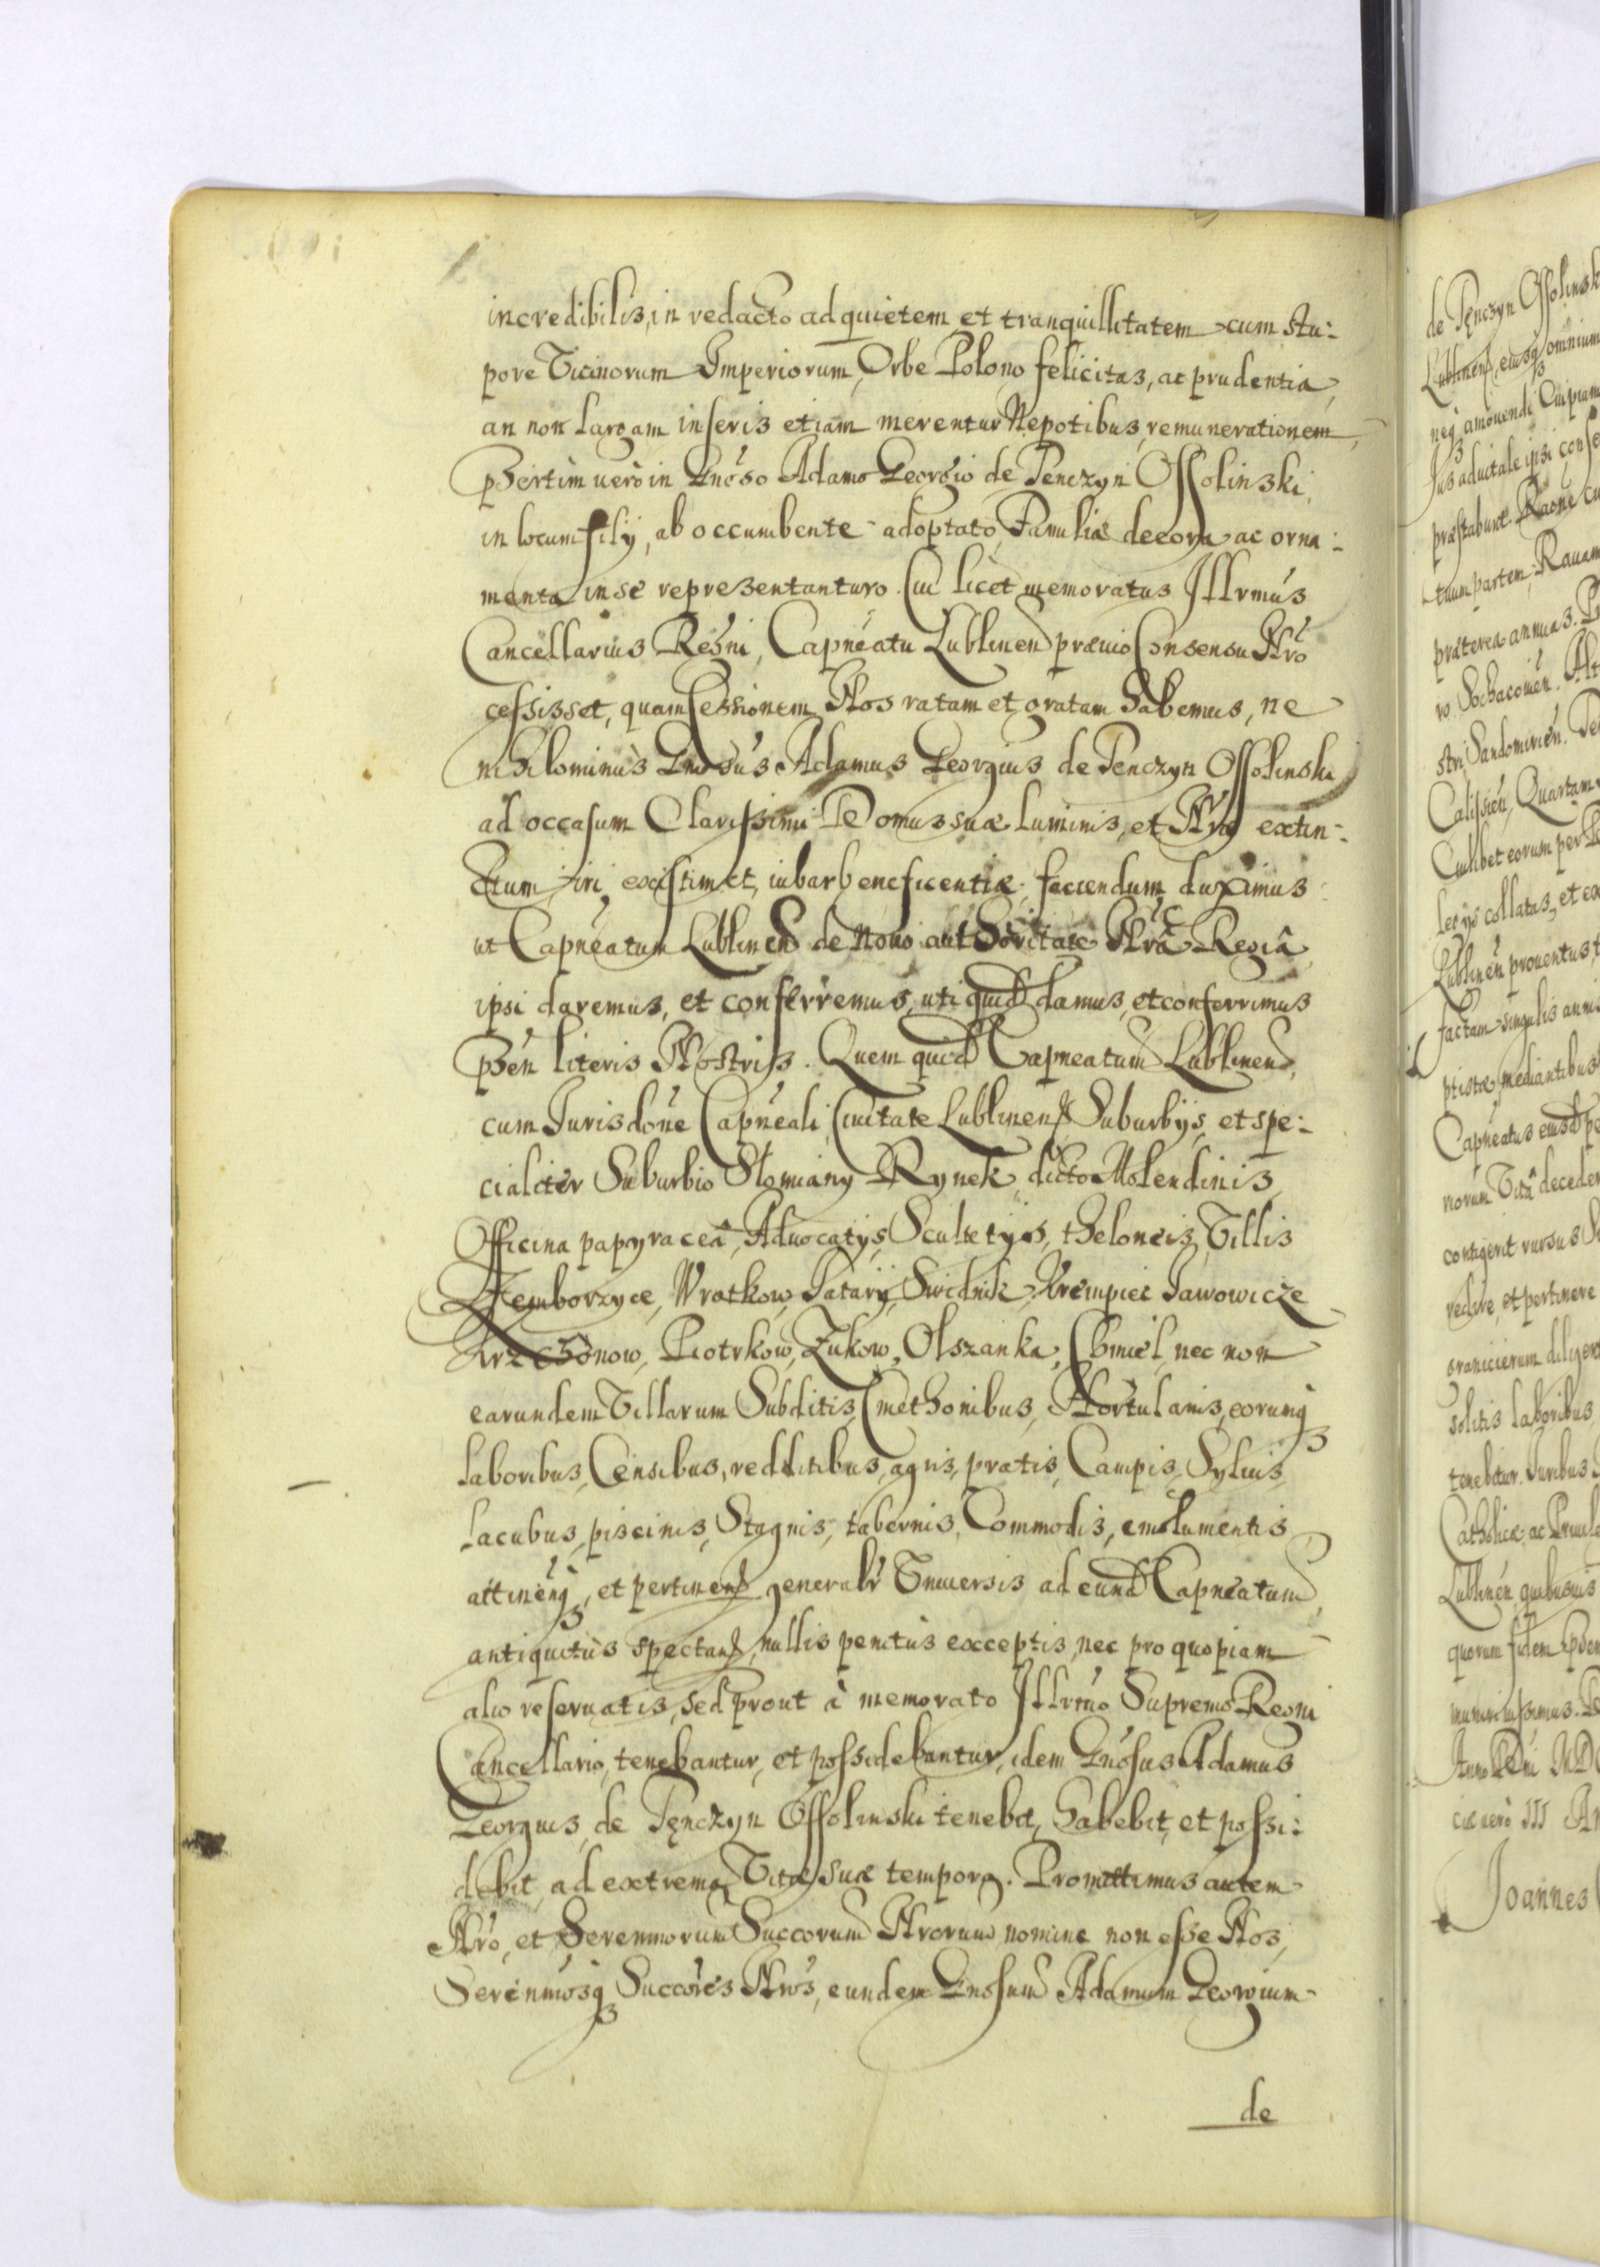 incredibilis, in redacto ad quietem et tranquillitatem cum stu:
pore Vicinorum Imperiorum, Orbe Polono felicitas, ac prudentia,
an non largam in seris etiam merentur Nepotibus remunerationem,
psertim verò in Gnoso Adamo Georgio de Tenczyn Ossolinski,
in locum filij, ab occumbente adoptato, Familiæ decora ac orna:
menta in se representanturo. Cui licet memoratus Illrmus
Cancellarius Regni, Capneatu Lublinen prævio Consensu Nro
cessisset, quam Cessionem Nos ratam et gratam habemus, ne
nihilominus Gnosus Adamus Georgius de Tenczyn Ossolinski
ad occasum Clarissimi Domus suæ luminis, et Nræ extin:
ctum iri existimet, iubar beneficentiæ, faciendum duximus
ut Capneatum Lublinen de novo authoritate Nra Regiâ
ipsi daremus, et conferremus, uti quid damus, et conferrimus
Psen literis Nostris. Quem quid Capneatum Lublinen,
cum Jurisdone Capneali, Civitate Lublinen Suburbijs, et spe:
cialiter Suburbio Słomiany Rynek dicto Molendinis,
Officina papyraceâ, Advocatijs, Scultetijs, theloneis, Villis
Zemborzyce, Wrotkow, Tatary, Swidnik, Krempiec Jawowicze
Krzchonow, Piotrkow, Zukow, Olszanka, Chmiel, nec non
earundem Villarum Subditis, Cmethonibus, Hortulanis, eorumq3
laboribus, Censibus, redditibus, agris, pratis, Campis, Sylvis,
lacubus, piscinis, Stagnis, tabernis, Commodis, emolumentis
attinenq3, et pertinen generalr Universis ad eund Capneatum
antiquitùs spectan, nullis penitùs exceptis, nec pro quopiam
alio reservatis, sed prout à memorato Illrmo Supremo Regni
Cancellario, tenebantur, et possidebantur, idem Gnosus Adamus
Georgius de Tęnczyn Ossolinski tenebit, habebit, et possi:
debit, ad extrema Vitæ suæ tempora. Promittimus autem
Nro, et Serenmorum Succorum Nrorum nomine non esse Nos,
Serenmosq3 Succores Nros, eundem Gnosum Adamum Georgium
de
de Tęnczyn Ossolinsk
Lublinen, eiusq3 omnium
neq3 amovendi Cuipiam
præstabunt. Raone cu
tuum partem, Ravam
præterea annuas.
ro Sochacovien. Alt
stri Sandomirien.
Calissien, Quartam
Cuilibet eorum per
lecijs collatas, et ex
Lublinen proventus,
factam singulis annis
ptistæ, mediantibus
Capneatus eiusd pe
contigerit rursus S
redire, et pertinere
solitis laboribus,
tenebitur. Juribus
Catholicæ, ac
Lublinen, quibusvis
quorum fidem Psen
Anno Dni MDC
ciæ verò III
Joannes